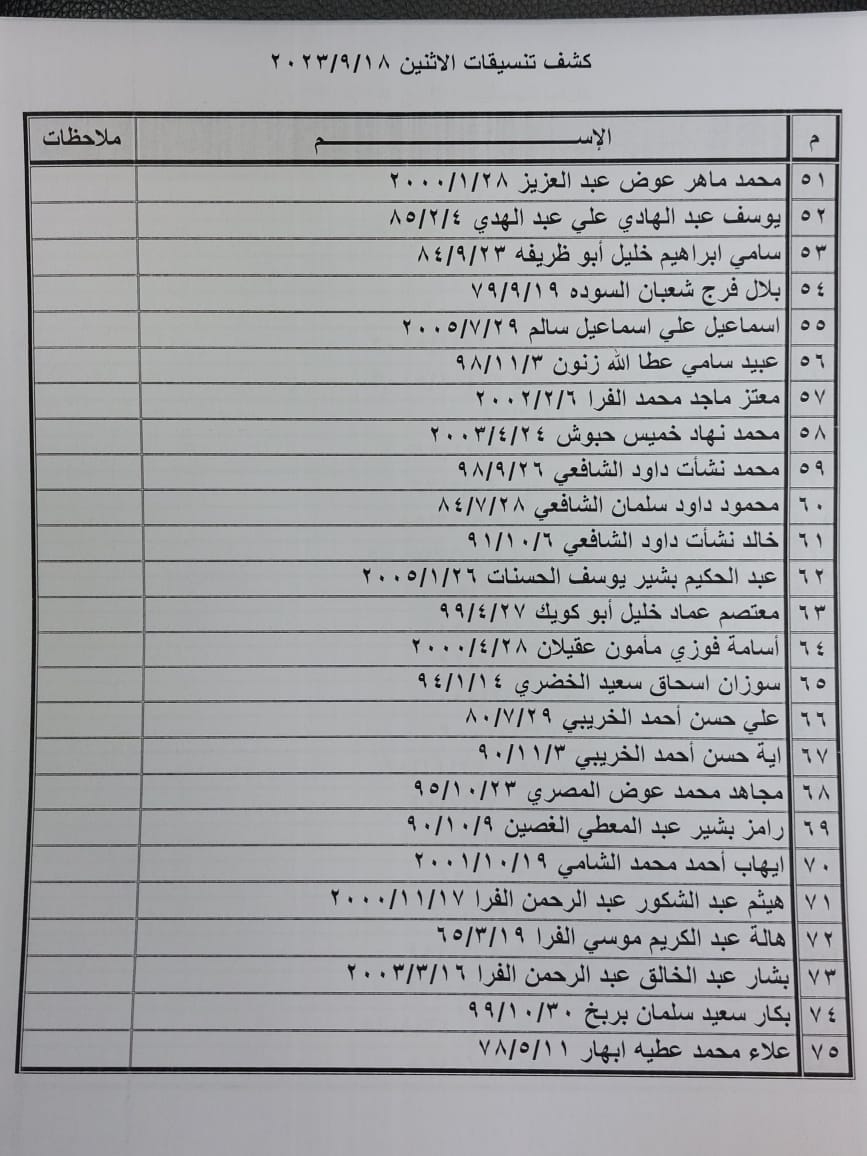 كشف تنسيقات الاثنين ٢٠٢٣/٩/١٨
م الإســـم ملاحظات
٥١ محمد ماهر عوض عبد العزيز ٢٠٠٠/١/٢٨
٥٢ يوسف عبد الهادي علي عبد الهدي ٨٥/٢/٤
٥٣ سامي ابراهيم خليل أبو ظريفه ٨٤/٩/٢٣
٥٤ بلال فرج شعبان السوده ٧٩/٩/١٩
٥٥ اسماعيل علي اسماعيل سالم ٢٠٠٥/٧/٢٩
٥٦ عبيد سامي عطا الله زنون ٩٨/١١/٣
٥٧ معتز ماجد محمد الفرا ٢٠٠٢/٢/٦
٥٨ محمد نهاد خميس حبوش ٢٠٠٣/٤/٢٤
٥٩ محمد نشأت داود الشافعي ٩٨/٩/٢٦
٦٠ محمود داود سلمان الشافعي ٨٤/٧/٢٨
٦١ خالد نشأت داود الشافعي ٩١/١٠/٦
٦٢ عبد الحكيم بشير يوسف الحسنات ٢٠٠٥/١/٢٦
٦٣ معتصم عماد خليل أبو كويك ٩٩/٤/٢٧
٦٤ أسامة فوزي مأمون عقيلان ٢٠٠٠/٤/٢٨
٦٥ سوزان اسحاق سعيد الخضري ٩٤/١/١٤
٦٦ علي حسن أحمد الخريبي ٨٠/٧/٢٩
٦٧ اية حسن أحمد الخريبي ٩٠/١١/٣
٦٨ مجاهد محمد عوض المصري ٩٥/١٠/٢٣
٦٩ رامز بشير عبد المعطي الغصين ٩٠/١٠/٩
٧٠ ايهاب أحمد محمد الشامي ٢٠٠١/١٠/١٩
٧١ هيثم عبد الشكور عبد الرحمن الفرا ٢٠٠٠/١١/١٧
٧٢ هالة عبد الكريم موسي الفرا ٦٥/٣/١٩
٧٣ بشار عبد الخالق عبد الرحمن الفرا ٢٠٠٣/٣/١٦
٧٤ بكار سعيد سلمان بربخ ٩٩/١٠/٣٠
٧٥ علاء محمد عطيه ابهار ٧٨/٥/١١